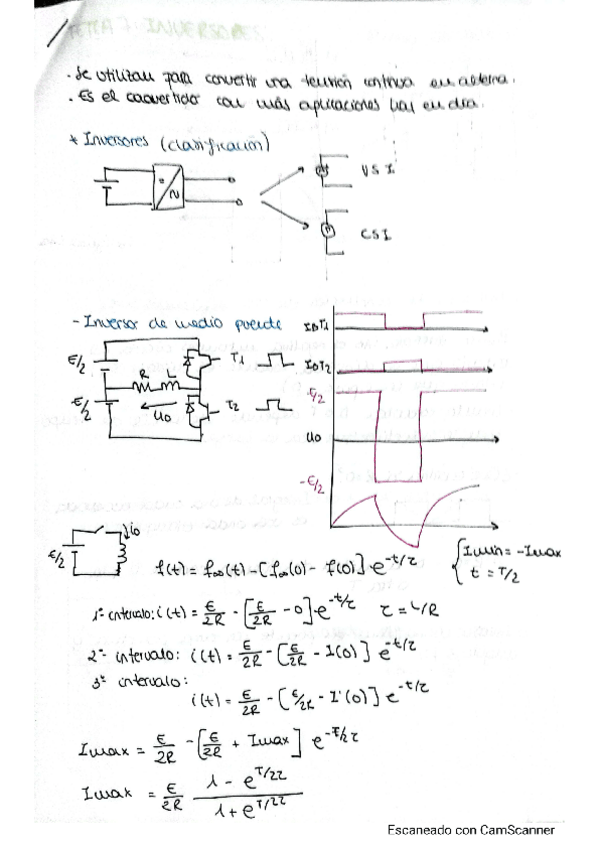 TEMA 7 INVERSORES
· Se utilizan para convertir una tensión continua en alterna.
· Es el convertidor con más aplicaciones hay en día.
* Inversores (clasificación)
VSI
CSI
- Inversor de medio puente
IBT1
IBT2
E/2
R L
T1
E/2
Uo
T2
E/2
Uo
-E/2
E/2
io
f(t) = f∞(t) - [f∞(0) - f(0)] · e^-t/τ
{ Imin = -Imax
t = T/2
1º intervalo: i(t) = E/2R - [E/2R - 0] · e^-t/τ τ = L/R
2º intervalo: i(t) = E/2R - [E/2R - I(0)] e^-t/τ
3º intervalo:
i(t) = E/2R - [E/2R - I'(0)] e^-t/τ
Imax = E/2R - [E/2R + Imax] e^-T/2τ
Imax = E/2R (1 - e^T/2τ)/(1 + e^T/2τ)
Escaneado con CamScanner